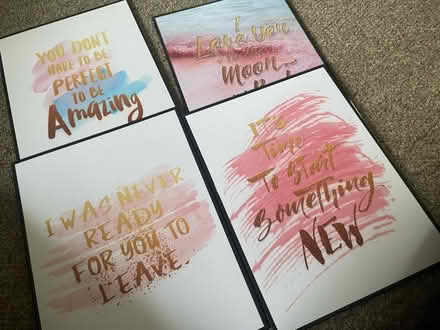 YOU DON'T
HAVE TO BE
PERFECT
TO BE
Amazing
I
Love you
to the
Moon
I WAS NEVER
READY
FOR YOU TO
LEAVE.
IT'S
Time
To Start
Something
NEW